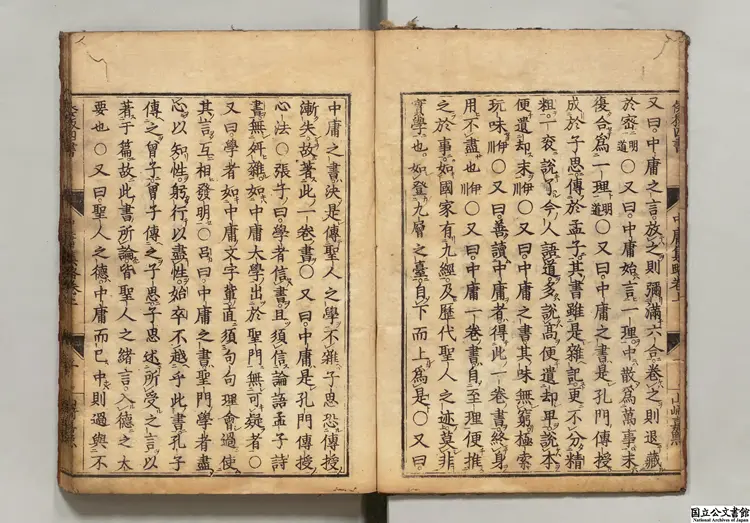 又曰。中庸之言。放之則彌滿六合。卷之則退藏
於密。明道〇又曰。中庸始言一理。中散爲萬事。末
復合爲一理。明道〇又曰。中庸之書。是孔門傳授。
成於子思。傳於孟子。其書雖是雜記。更不分精
粗。一衮說了。今人語道。多說高便遺却卑。說本
便遺却末。伊川〇又曰。中庸之書。其味無窮。極索
玩味。伊川〇又曰。善讀中庸者。得此一卷書。終身
用不盡也。伊川〇又曰。中庸一卷書。自至理便推
之於事。如國家有九經。及歷代聖人之迹。莫非
實學也。如登九層之臺。自下而上爲是。〇又曰。
中庸之書。決是傳聖人之學不雜。子思恐傳授
漸失。故著此一卷書。〇又曰。中庸是孔門傳授
心法。〇張子曰。學者信書。且須信論語孟子。詩
書無舛雜。如中庸大學。出於聖門。無可疑者。〇
又曰。學者如中庸文字輩。直須句句理會過。使
其言互相發明。〇呂曰。中庸之書。聖門學者盡
心以知性。躬行以盡性。始卒不越乎此書。孔子
傳之曾子。曾子傳之子思。子思述所受之言。以
著于篇。故此書所論。皆聖人之緒言。入德之大
要也。〇又曰。聖人之德。中庸而已。中則過與不
国立公文書館
National Archives of Japan